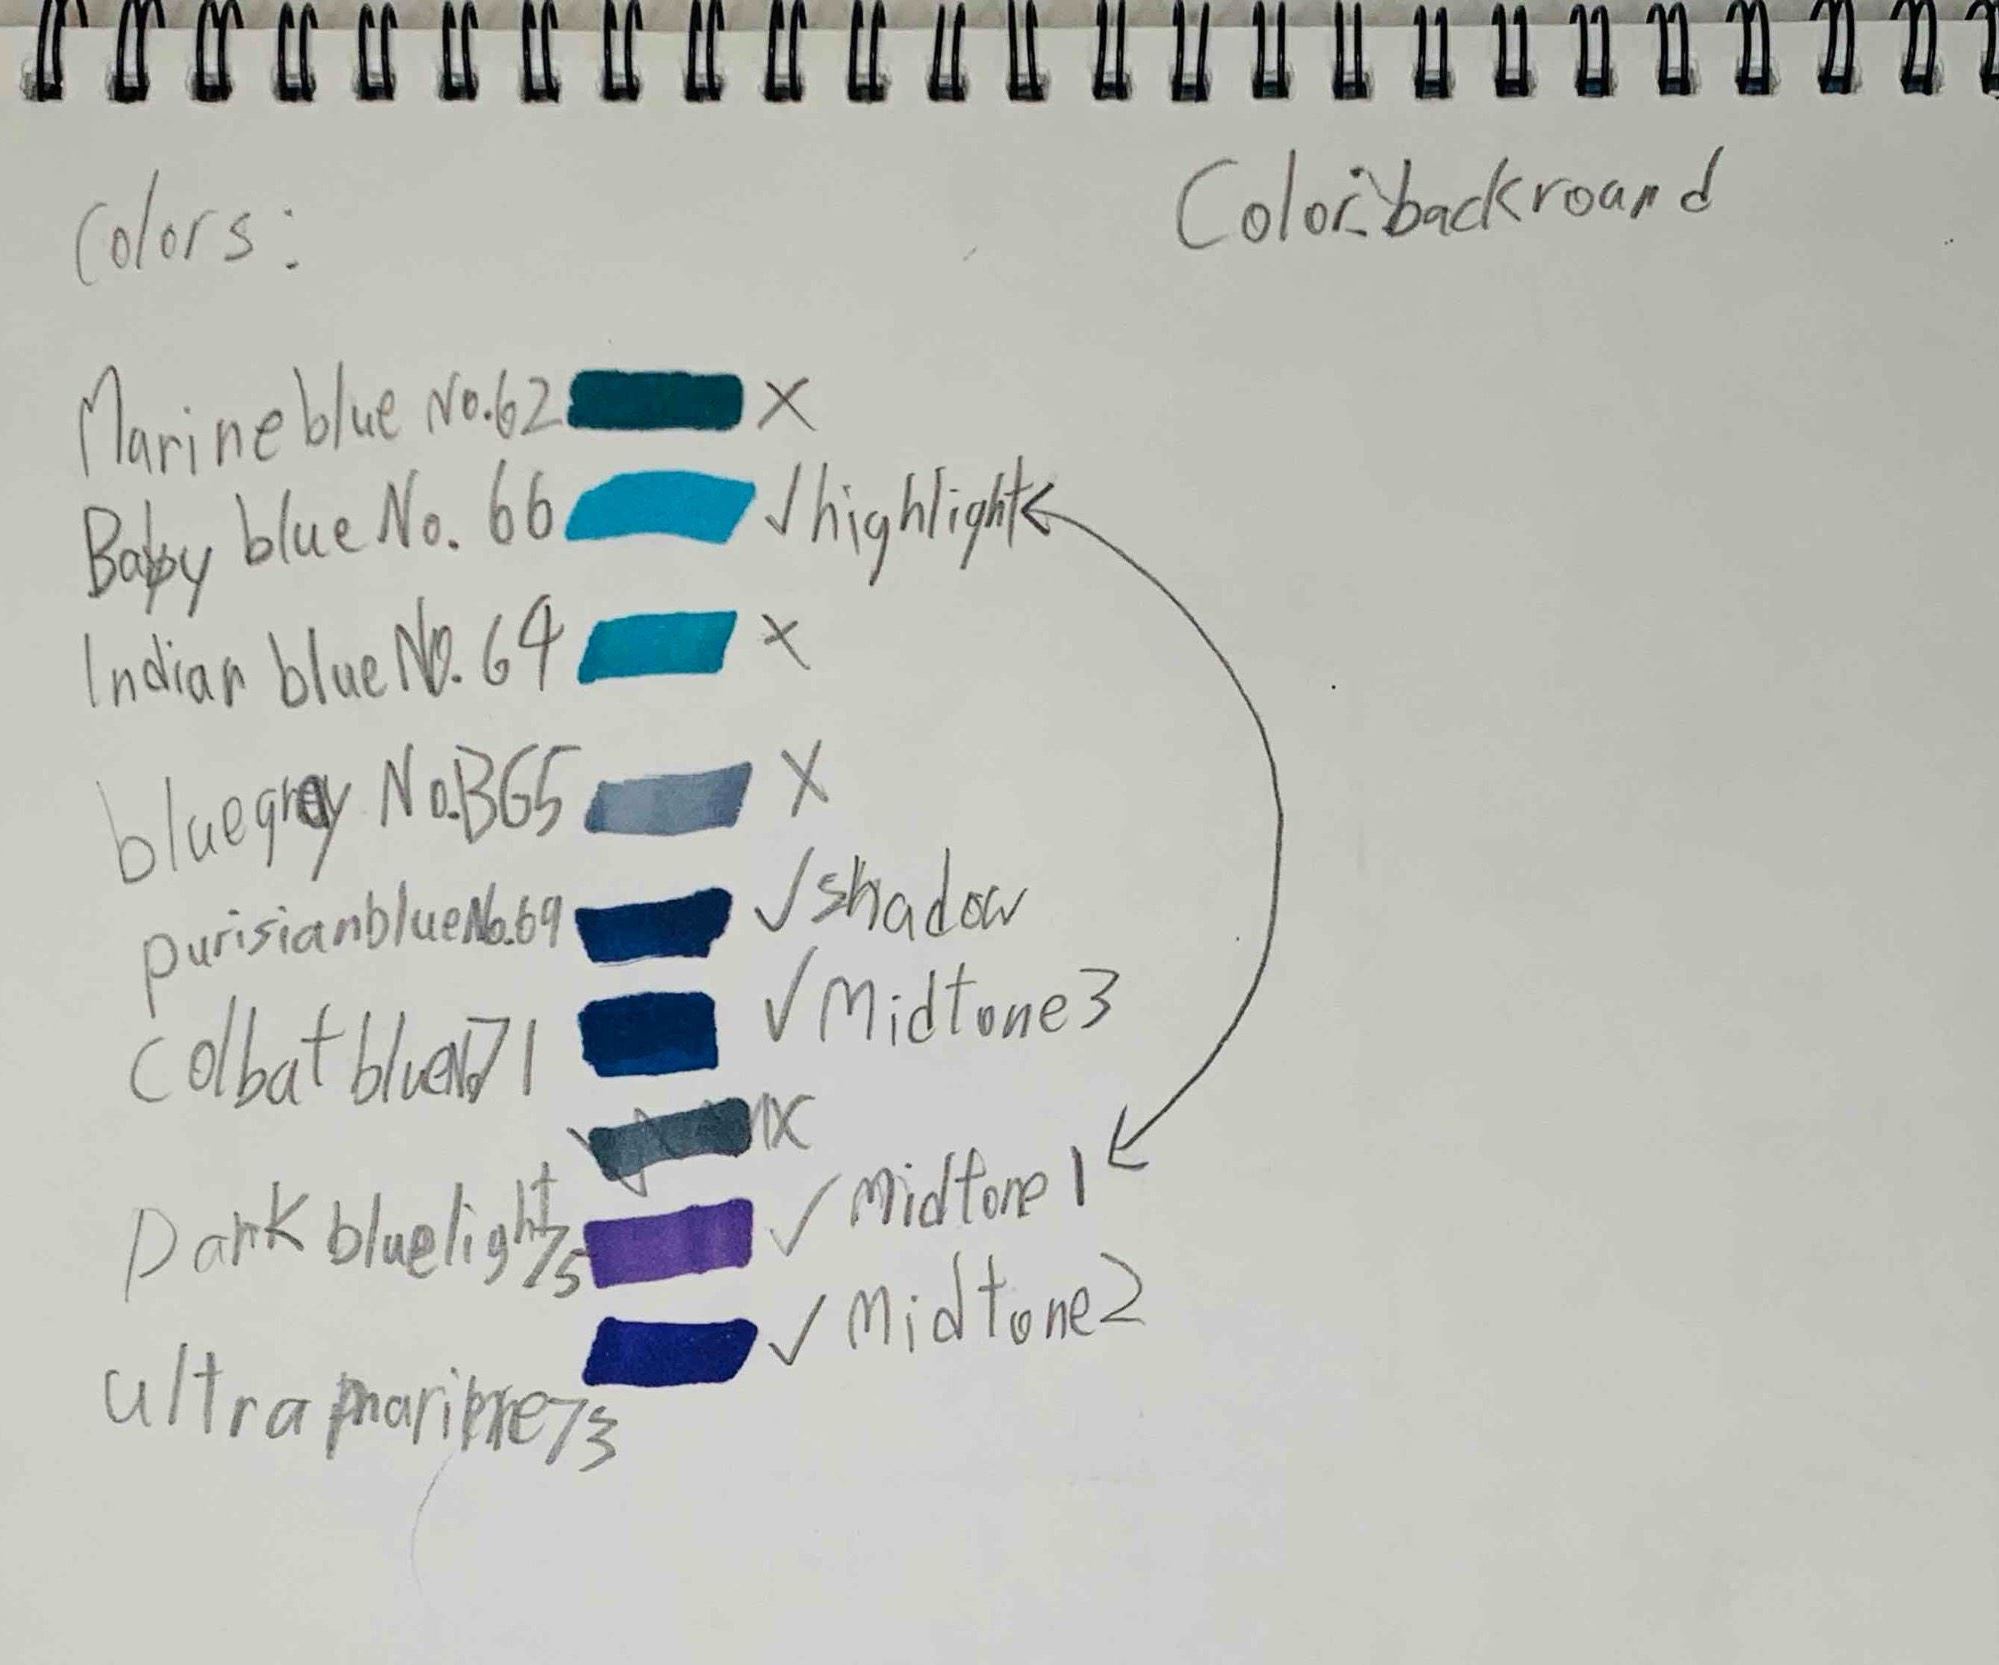 Colors:
Color: backroand
Marine blue No.62 X
Baby blue No. 66 ✓ highlight
Indian blue No. 64 X
blue gray No.BG5 X
purisian blue No.69 ✓ shadow
Colbat blue No71 ✓ Midtone3
X
Dark bluelight 75 ✓ Midtone 1
ultra marine 73 ✓ Midtone2